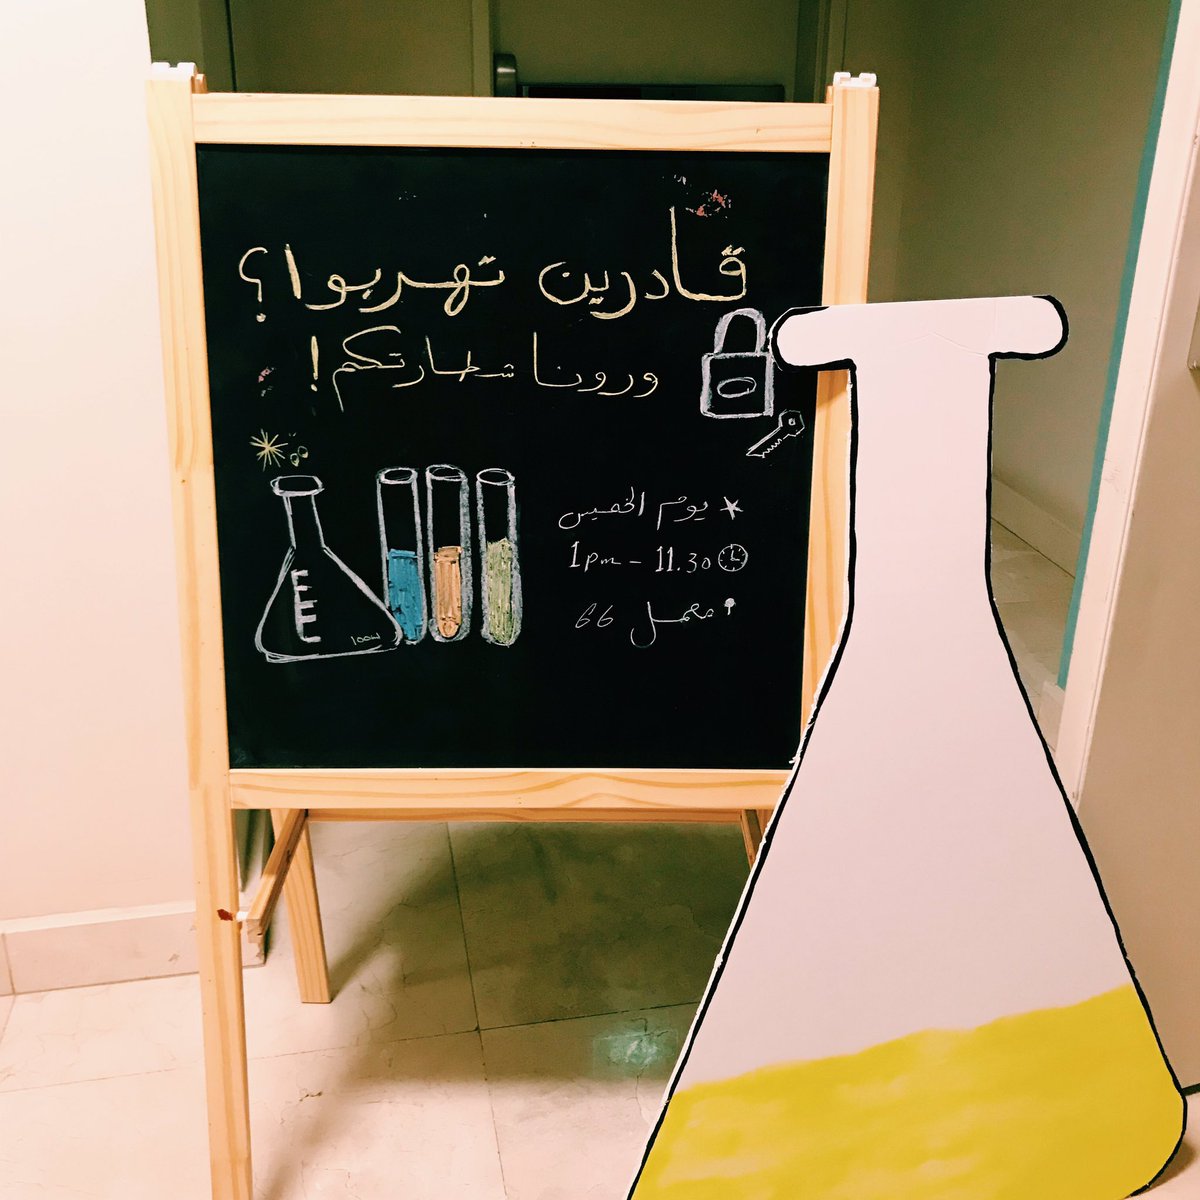 قادرين تهربوا؟
ورونا شطارتكم!
يوم الخميس
11.30 – 1pm
معمل 66
100